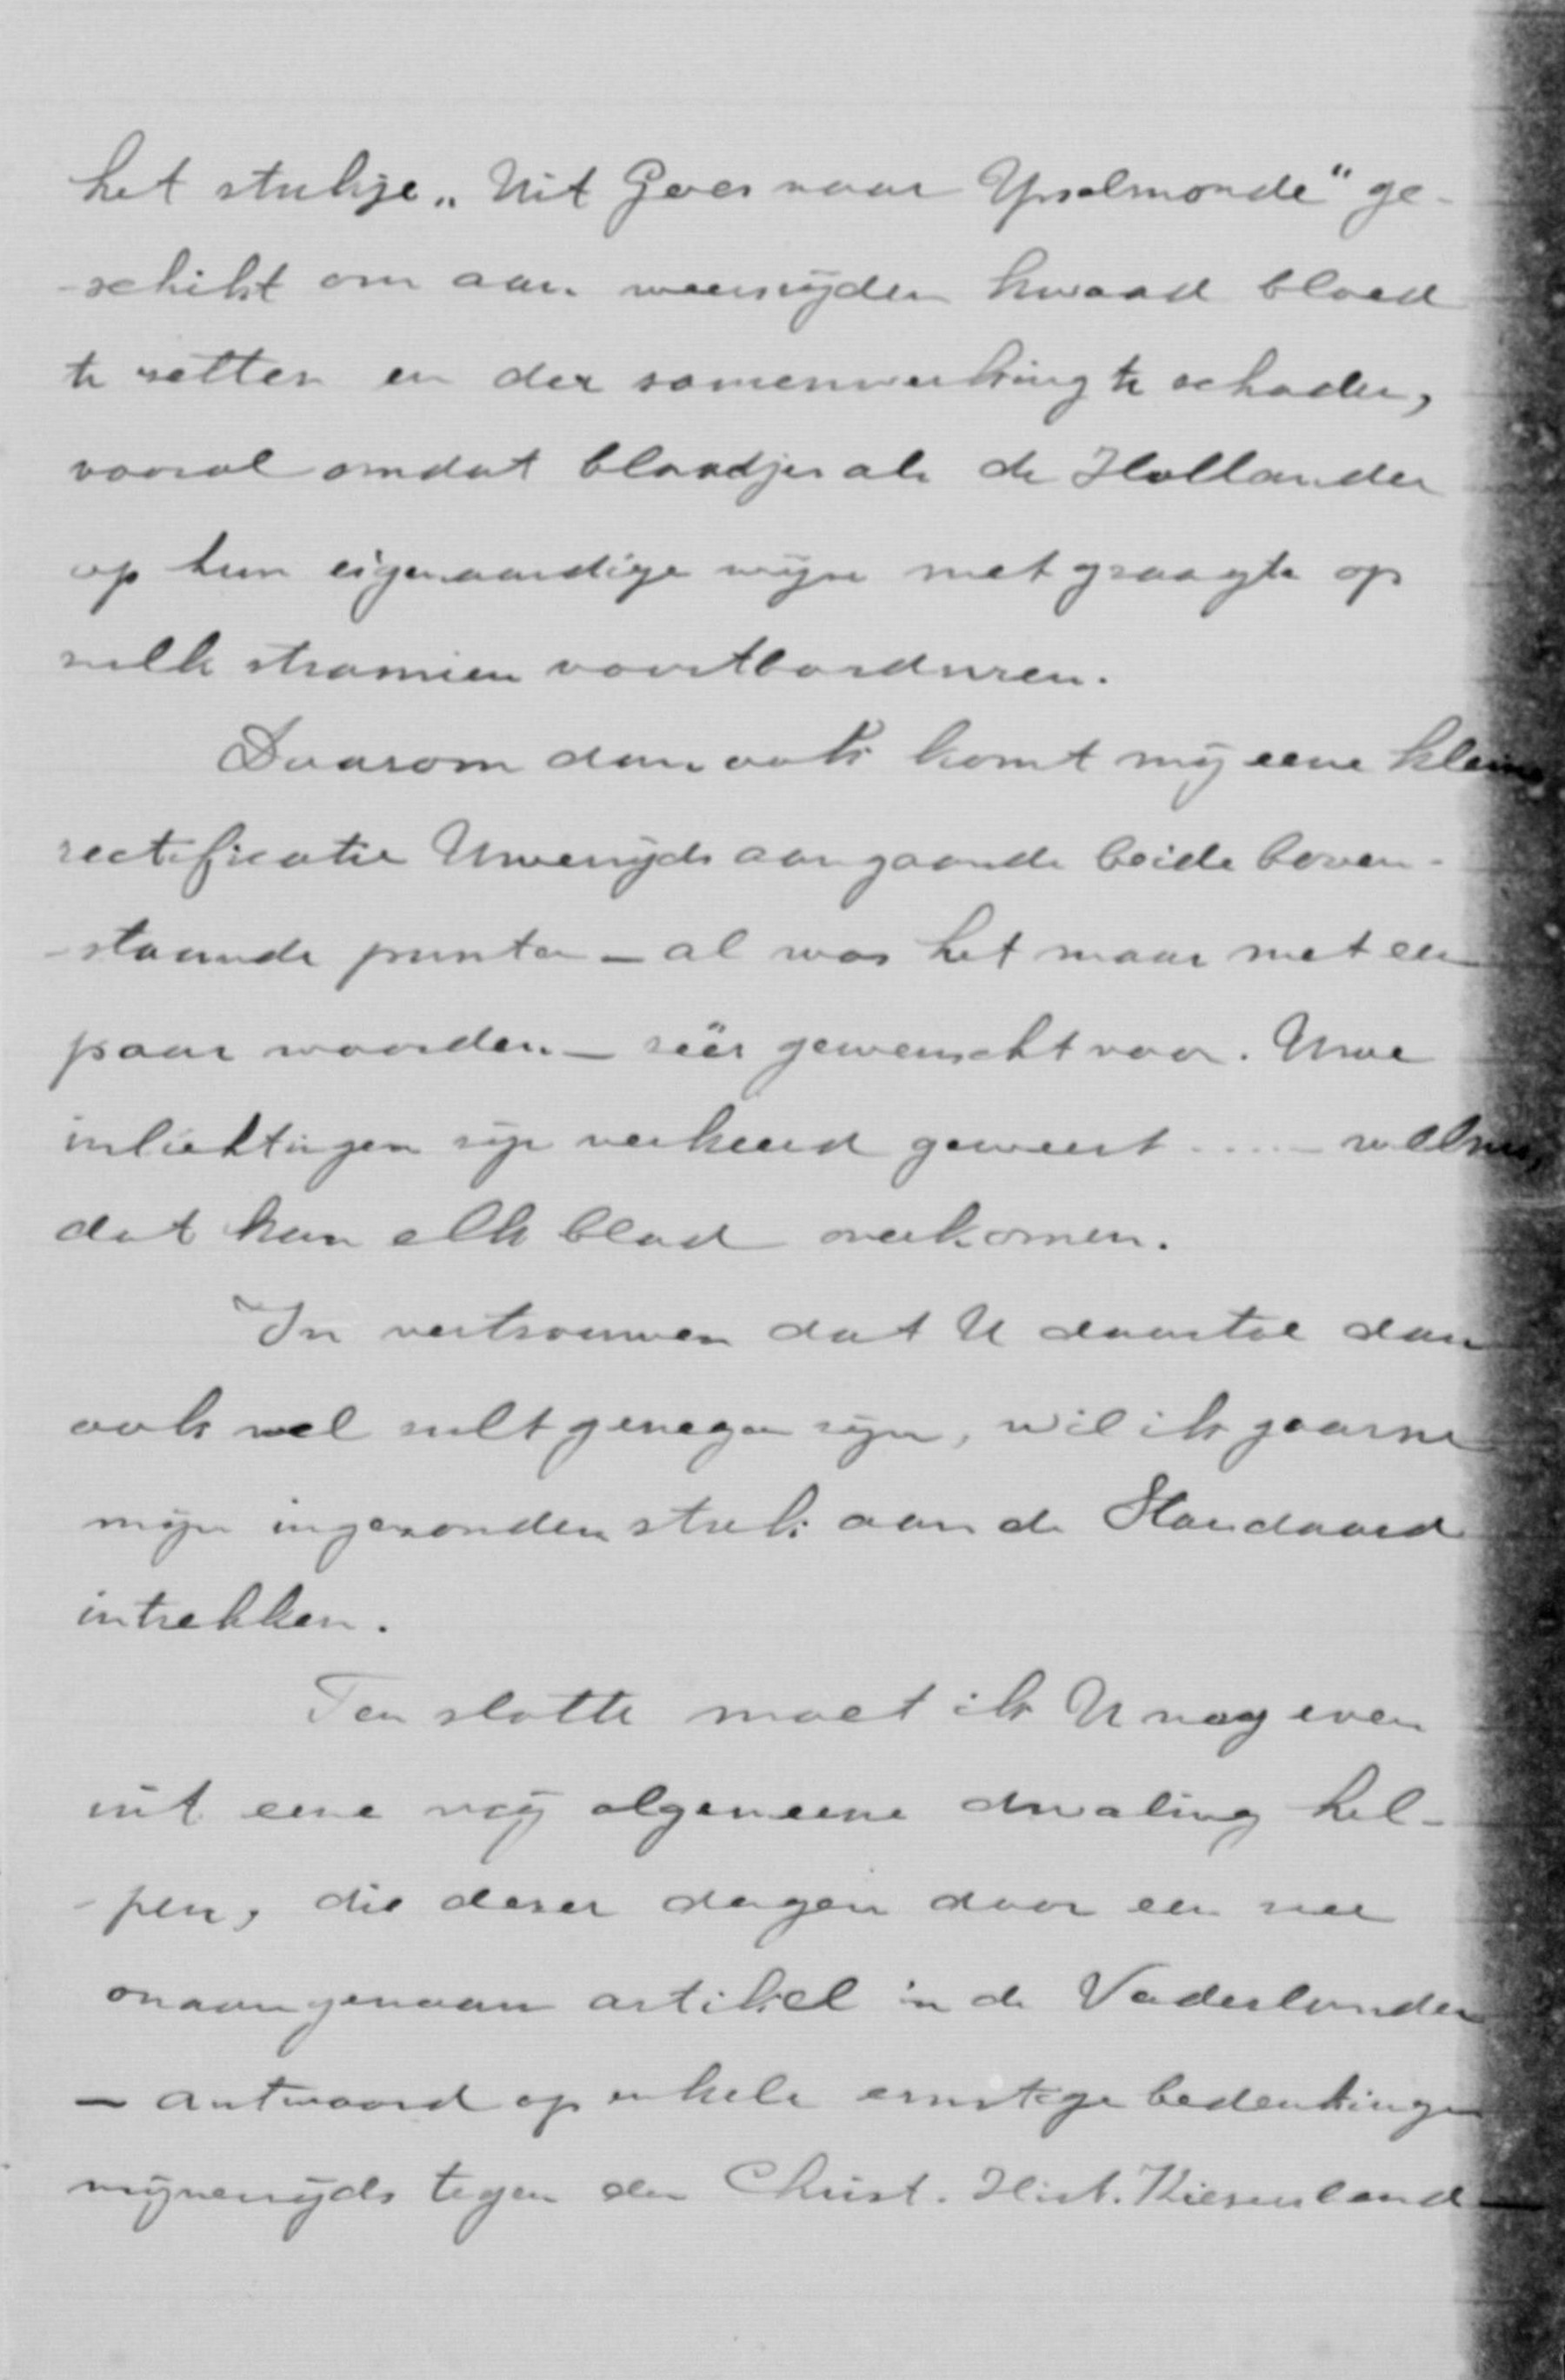 het stukje „Uit Goes naar Ysselmonde" ge-
-schikt om aan weerszijden kwaad bloed
te zetten en der samenwerking te schaden,
vooral omdat blaadjes als de Hollander
op hun eigenaardige wijze met graagte op
zulk stramien voortborduren.
Daarom dan ook komt mij eene kleine
rectificatie Uwerzijds aangaande beide boven-
-staande punten — al was het maar met een
paar woorden. — zéér gewenscht voor. Uwe
inlichtingen zijn verkeerd geweest ..... welnu,
dat kan elk blad overkomen.
In vertrouwen dat U daartoe dan
ook wel zult genegen zijn, wil ik gaarne
mijn ingezonden stuk aan de Standaard
intrekken.
Ten slotte moet ik U nog even
uit eene vrij algemeene dwaling hel-
-pen, die dezer dagen door een zeer
onaangenaam artikel in de Vaderlander
— antwoord op enkele ernstige bedenkingen
mijnerzijds tegen den Christ. Hist. Kiezersbond —